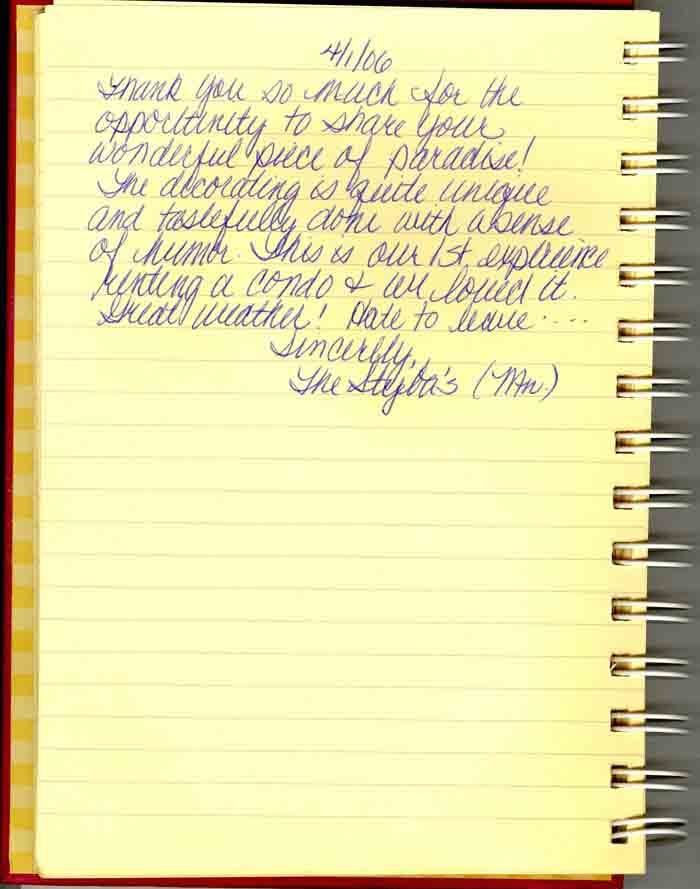 4/1/06
Thank you so much for the
opportunity to share your
wonderful piece of paradise!
The decorating is quite unique
and tastefully done with a sense
of humor. This is our 1st experience
renting a condo & we loved it.
Great weather! Hate to leave....
Sincerely,
The (Mn.)